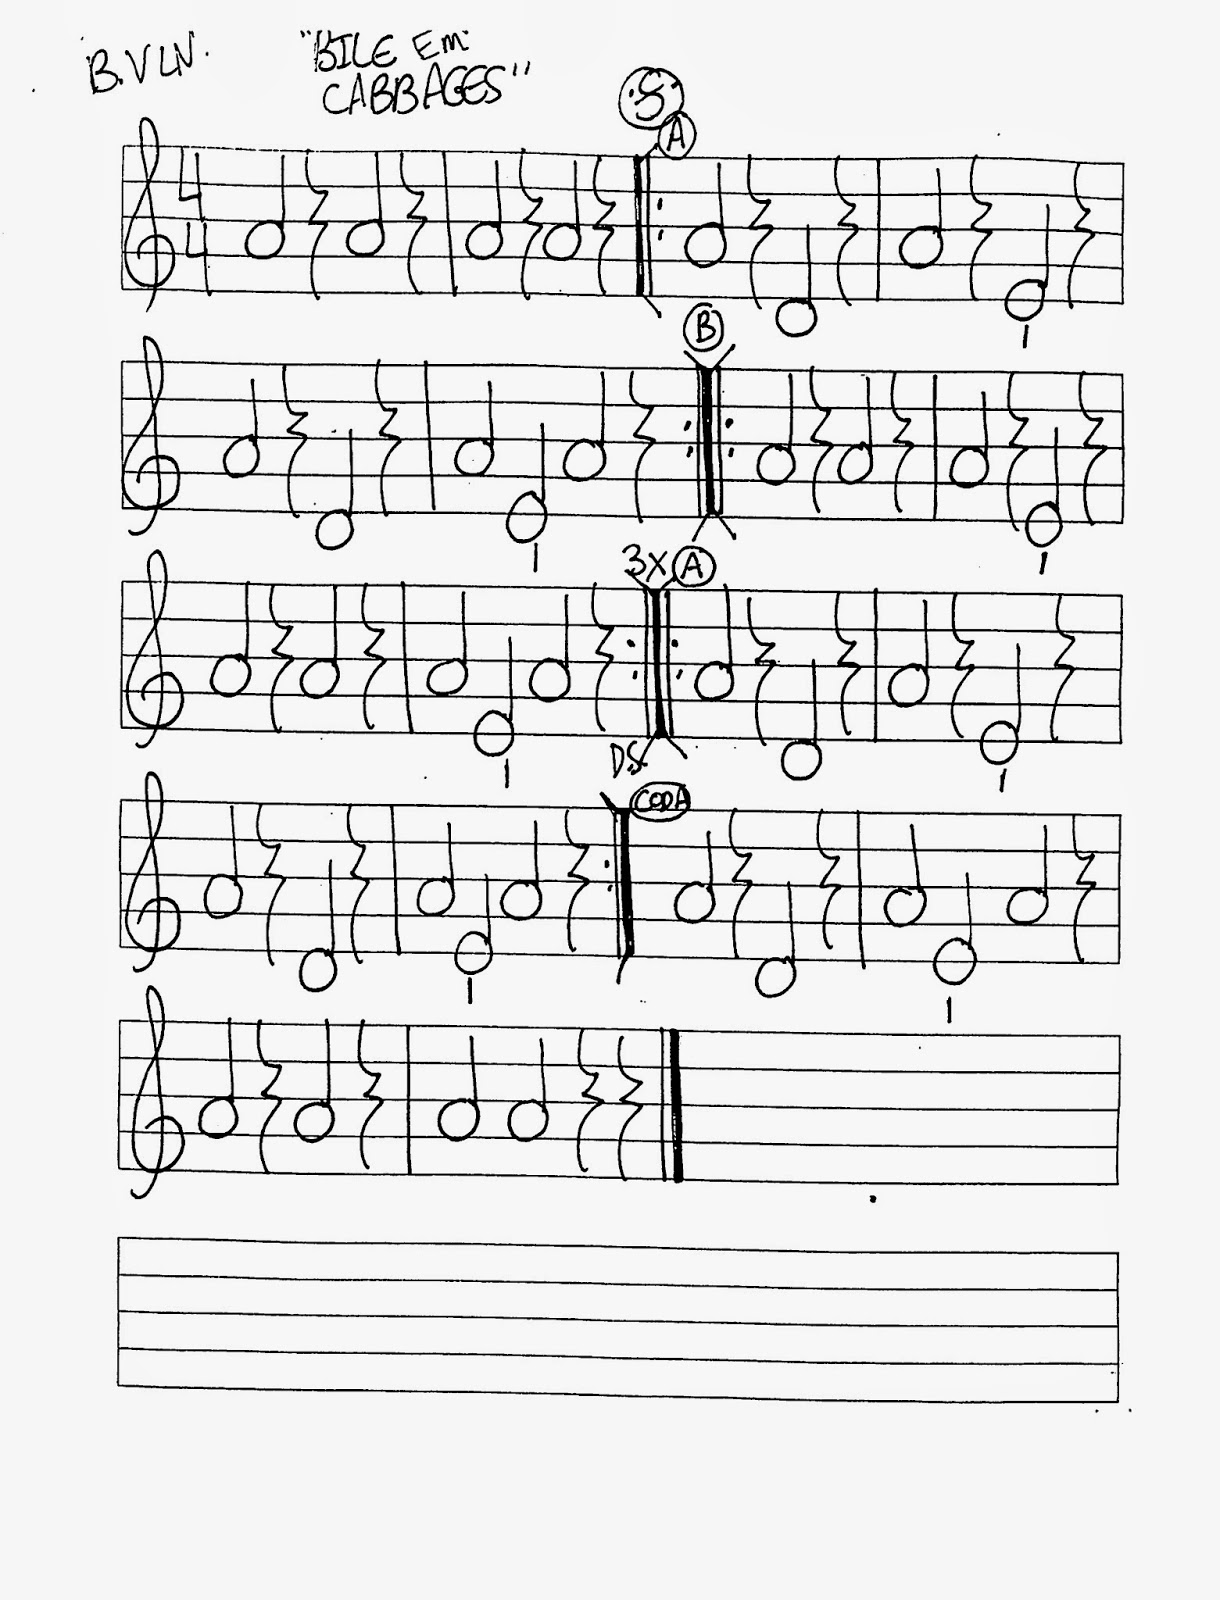 B.VLN.
"BILE EM
CABBAGES"
S
A
4
4
1
B
1
1
3X A
1
1
DS
CODA
1
1